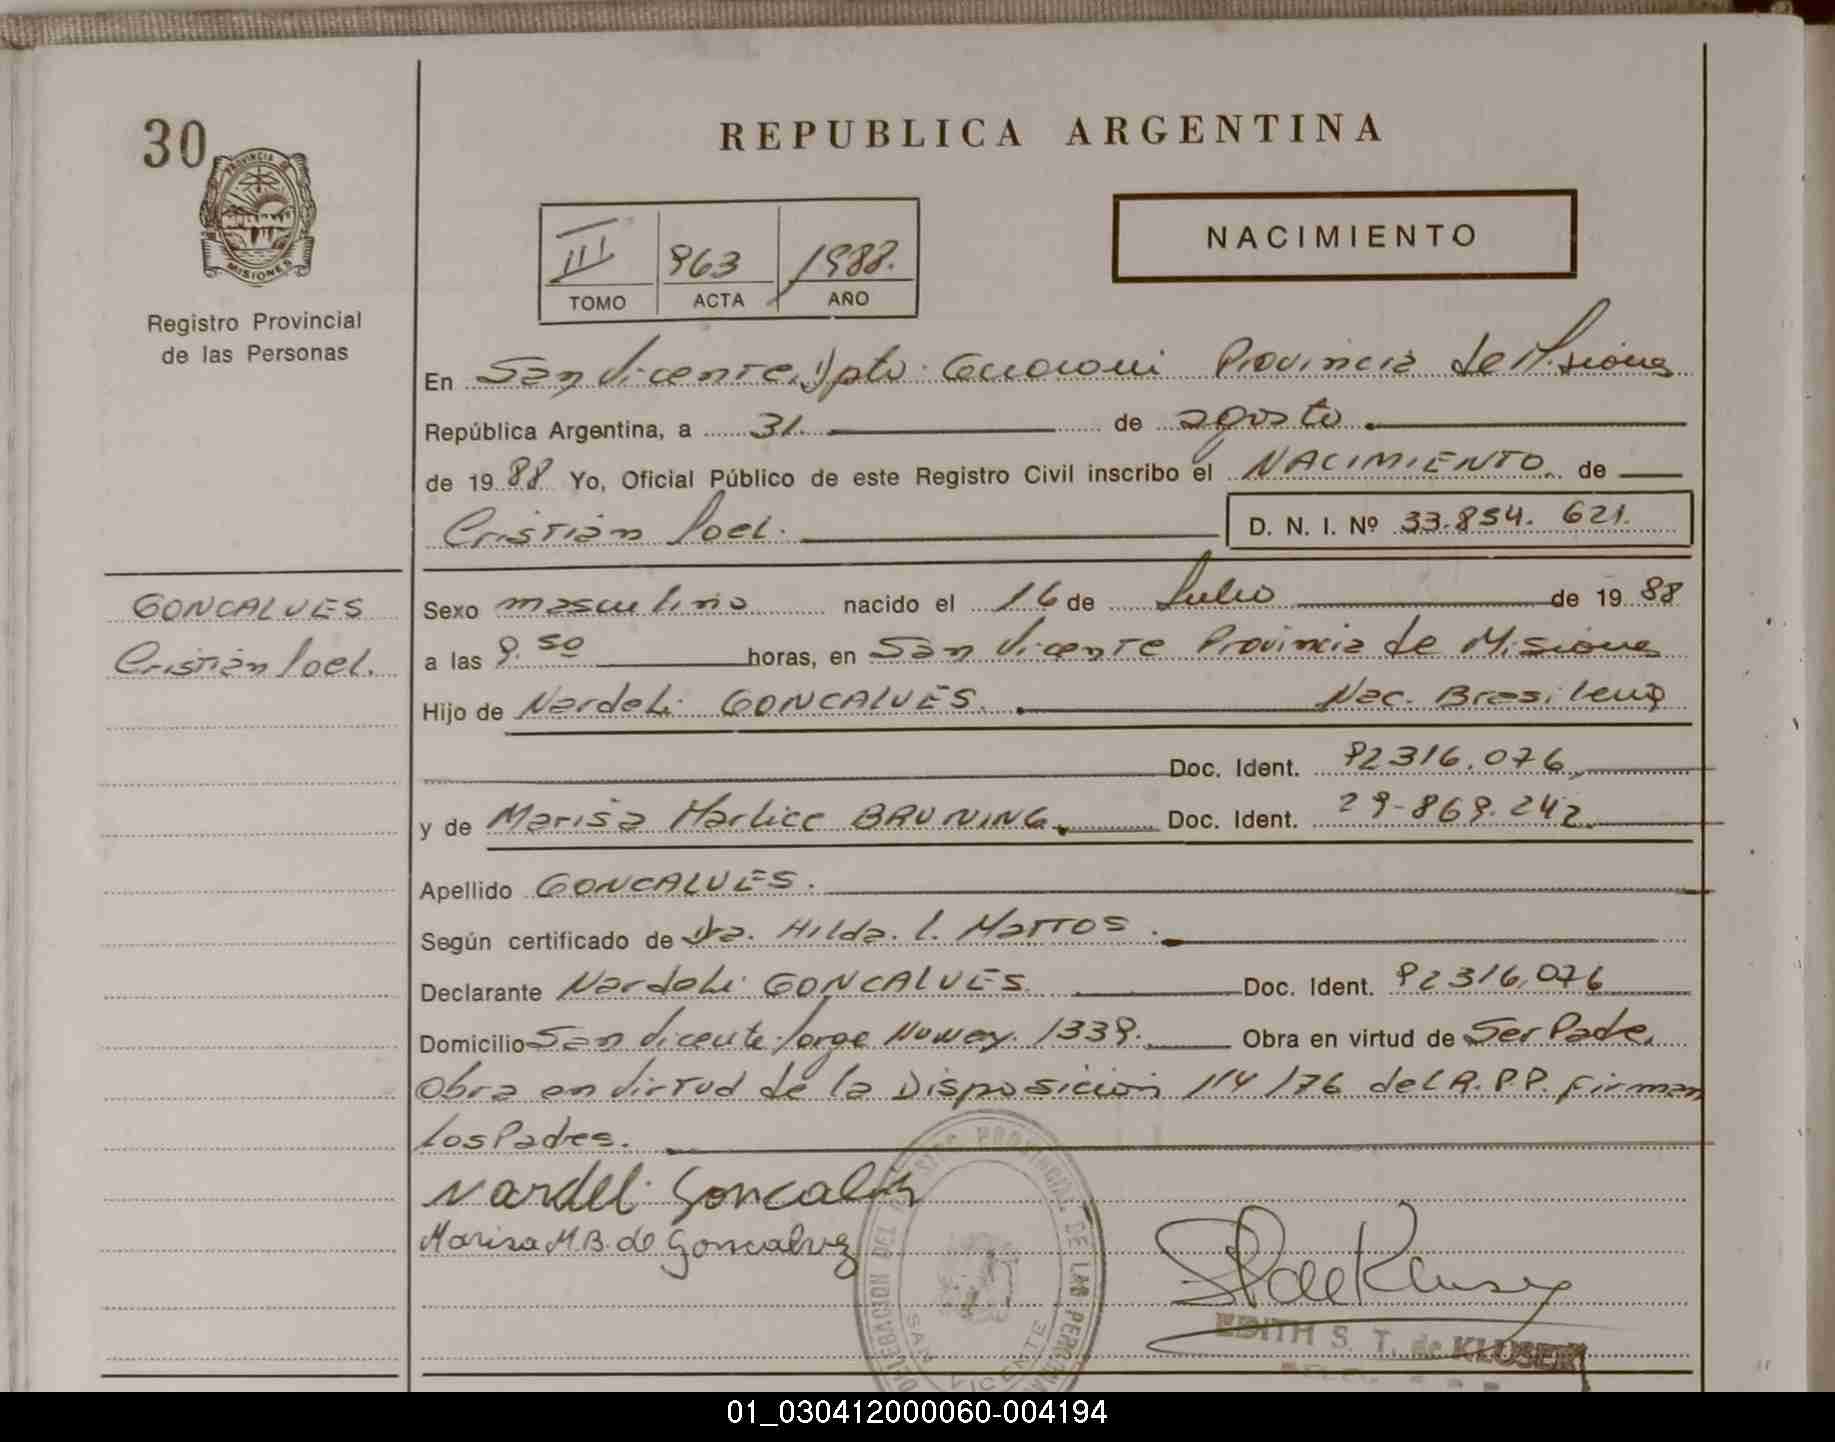 30
PROVINCIA DE
MISIONES
Registro Provincial
de las Personas
REPUBLICA ARGENTINA
III 963 1988.
TOMO ACTA AÑO
NACIMIENTO
En San Vicente, Dpto. Guarani Provincia de Misiones
República Argentina, a 31. de agosto
de 19 88 Yo, Oficial Público de este Registro Civil inscribo el NACIMIENTO de
Cristian Joel. D. N. I. Nº 33.854. 621.
GONCALVES
Cristian Joel.
Sexo masculino nacido el 16 de Julio de 19 88
a las 9.50 horas, en San Vicente Provincia de Misiones
Hijo de Nardeli GONCALVES. Nac. Brasileña
Doc. Ident. 92316.076
y de Marisa Marlice BRUNING. Doc. Ident. 29-869.242
Apellido GONCALVES.
Según certificado de Dra. Hilda. L. Mattos.
Declarante Nardeli GONCALVES Doc. Ident. 92316,076
Domicilio San Vicente Jorge 1339. Obra en virtud de Ser Padre.
Obra en virtud de la Disposicion 114/76 del R.P.P. firman
los Padres.
Nardeli Goncalves
Marisa M.B. de Goncalvez
PROVINCIAL DE LAS PERSONAS
SAN VICENTE
EDITH S. T. de KLUSER
01_030412000060-004194